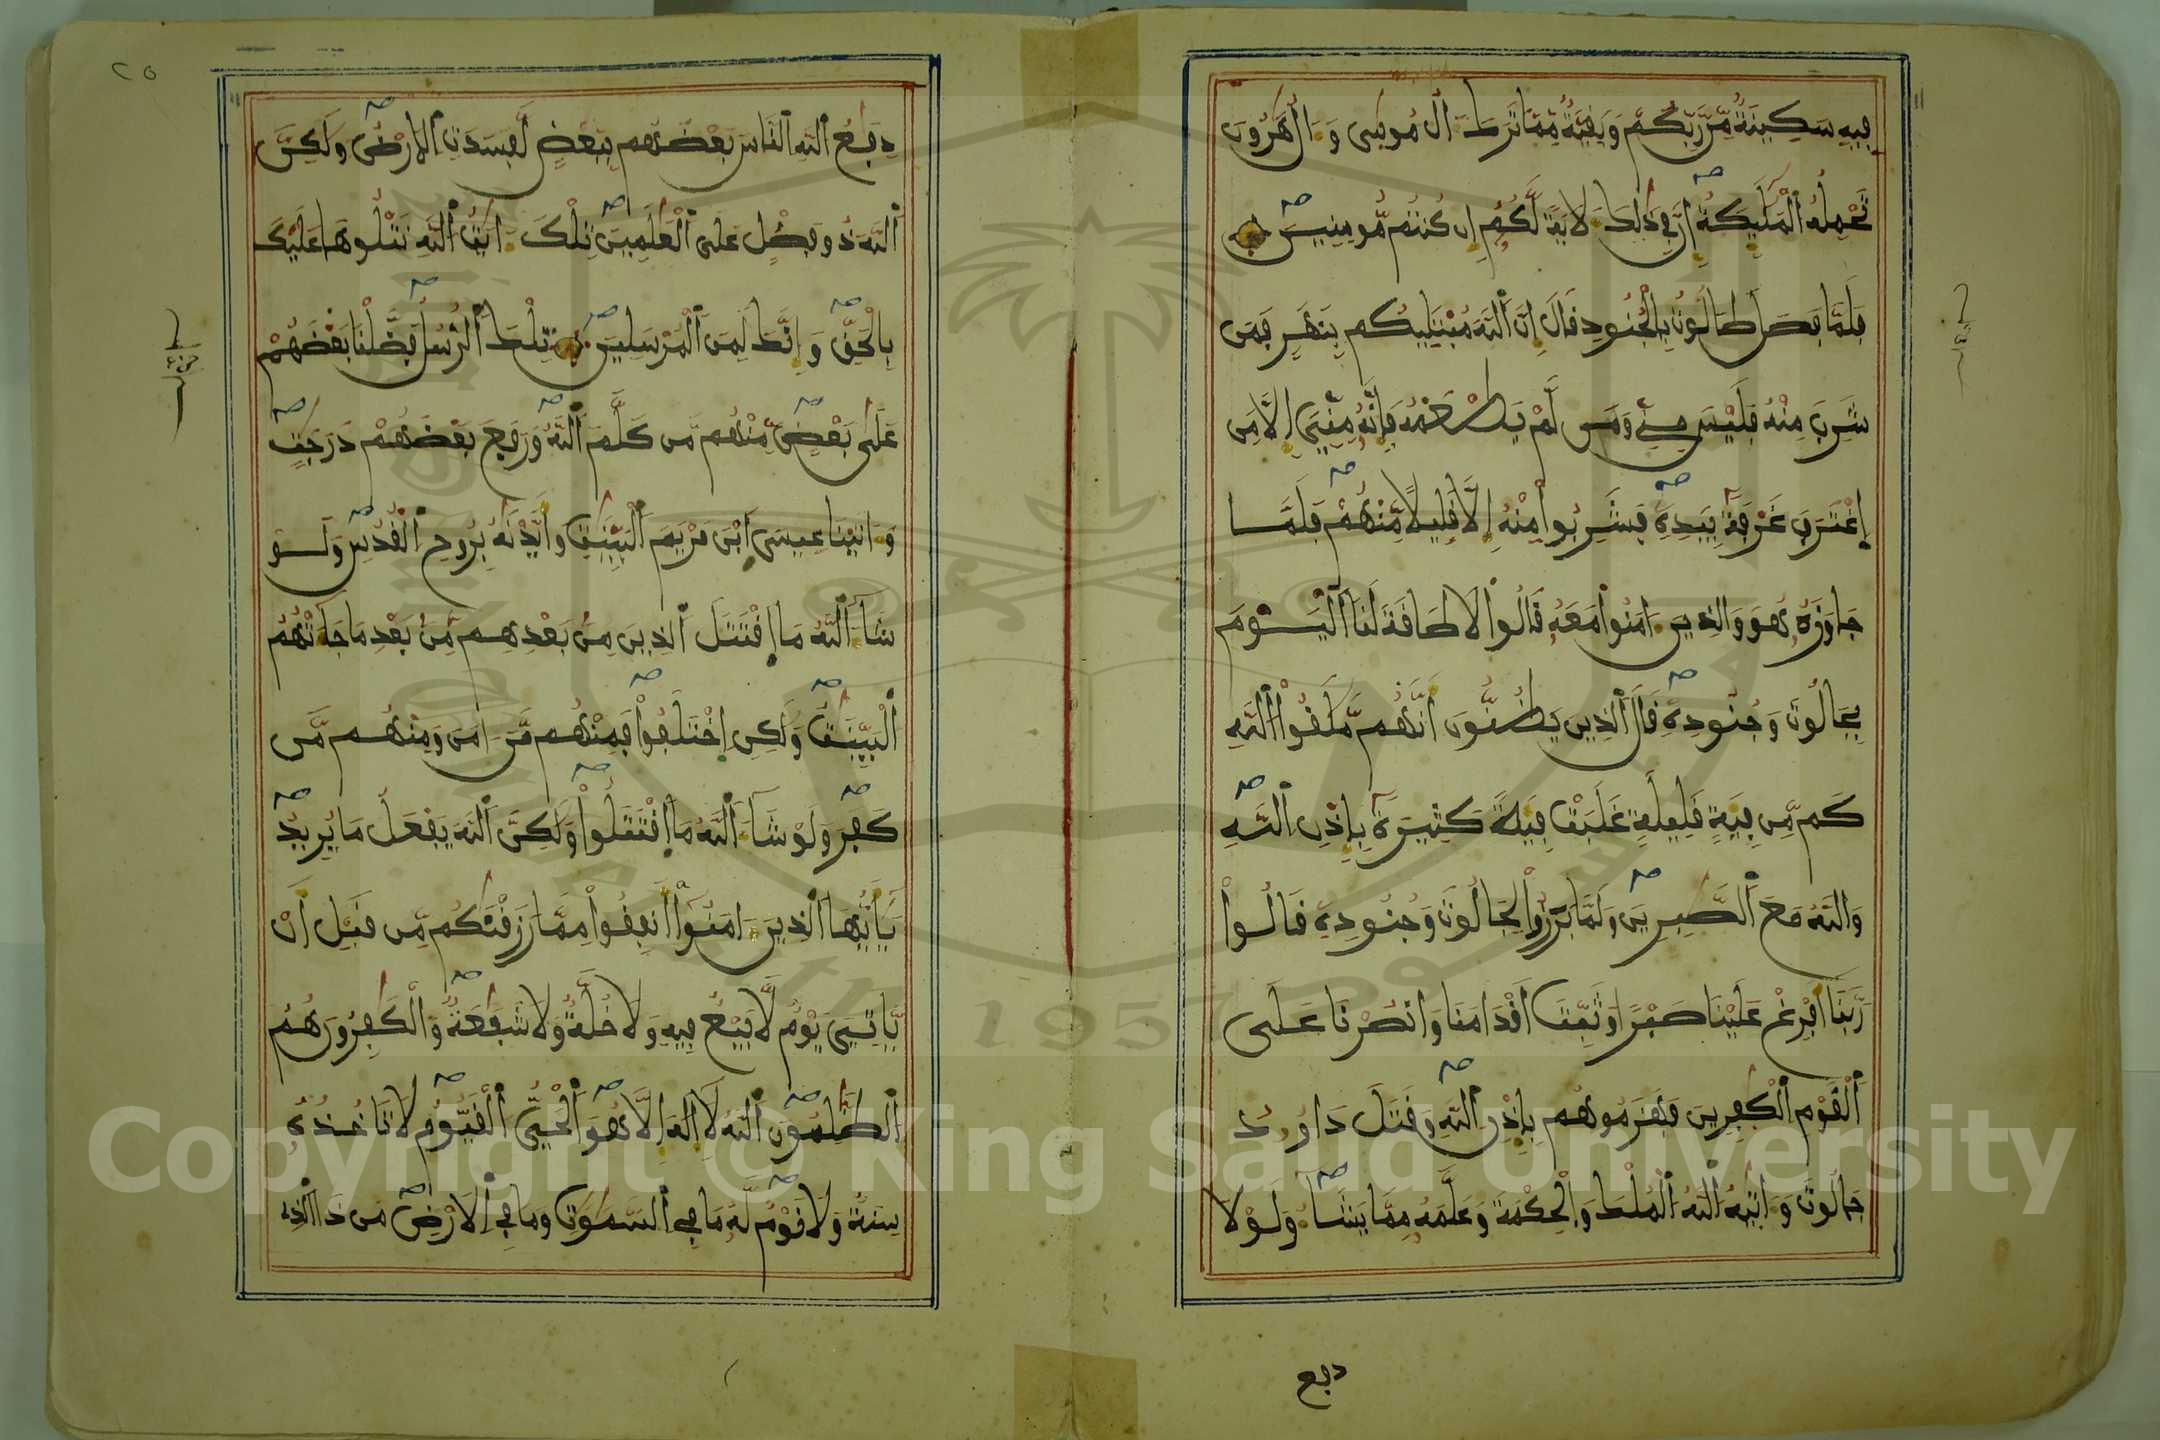 فيه سكينة من ربكم وبقية مما ترك ءال موسى وءال هرون
تحمله الملئكة إن في ذلك لأية لكم إن كنتم مومنين
فلما فصل طالوت بالجنود قال إن الله مبتليكم بنهر فمن
شرب منه فليس مني ومن لم يطعمه فإنه مني إلا من
إغترف غرفة بيده فشربوا منه إلا قليلا منهم فلما
جاوزه هو والذين ءامنوا معه قالوا لا طاقة لنا اليوم
بجالوت وجنوده قال الذين يظنون أنهم ملقوا الله
كم من فية قليلة غلبت فية كثيرة بإذن الله
والله مع الصبرين ولما برزوا لجالوت وجنوده قالوا
ربنا أفرغ علينا صبرا وثبت أقدامنا وانصرنا على
القوم الكفرين فهزموهم بإذن الله وقتل داود
جالوت وءاتيه الله الملك والحكمة وعلمه مما يشاء ولولا
دفع
٢٥
دفع الله الناس بعضهم ببعض لفسدت الأرض ولكن
الله ذو فضل على العلمين تلك ءايت الله نتلوها عليك
بالحق وإنك لمن المرسلين تلك الرسل فضلنا بعضهم
على بعض منهم من كلم الله ورفع بعضهم درجت
وءاتينا عيسى ابن مريم البينت وأيدنه بروح القدس ولو
شاء الله ما إقتتل الذين من بعدهم من بعد ما جاءتهم
البينت ولكن إختلفوا فمنهم من ءامن ومنهم من
كفر ولو شاء الله ما إقتتلوا ولكن الله يفعل ما يريد
يأيها الذين ءامنوا أنفقوا مما رزقنكم من قبل أن
ياتي يوم لا بيع فيه ولا خلة ولا شفعة والكفرون هم
الظلمون الله لا إله إلا هو الحي القيوم لا تاخذه
سنة ولا نوم له ما في السموت وما في الأرض من ذا الذي
1957
Copyright © King Saud University